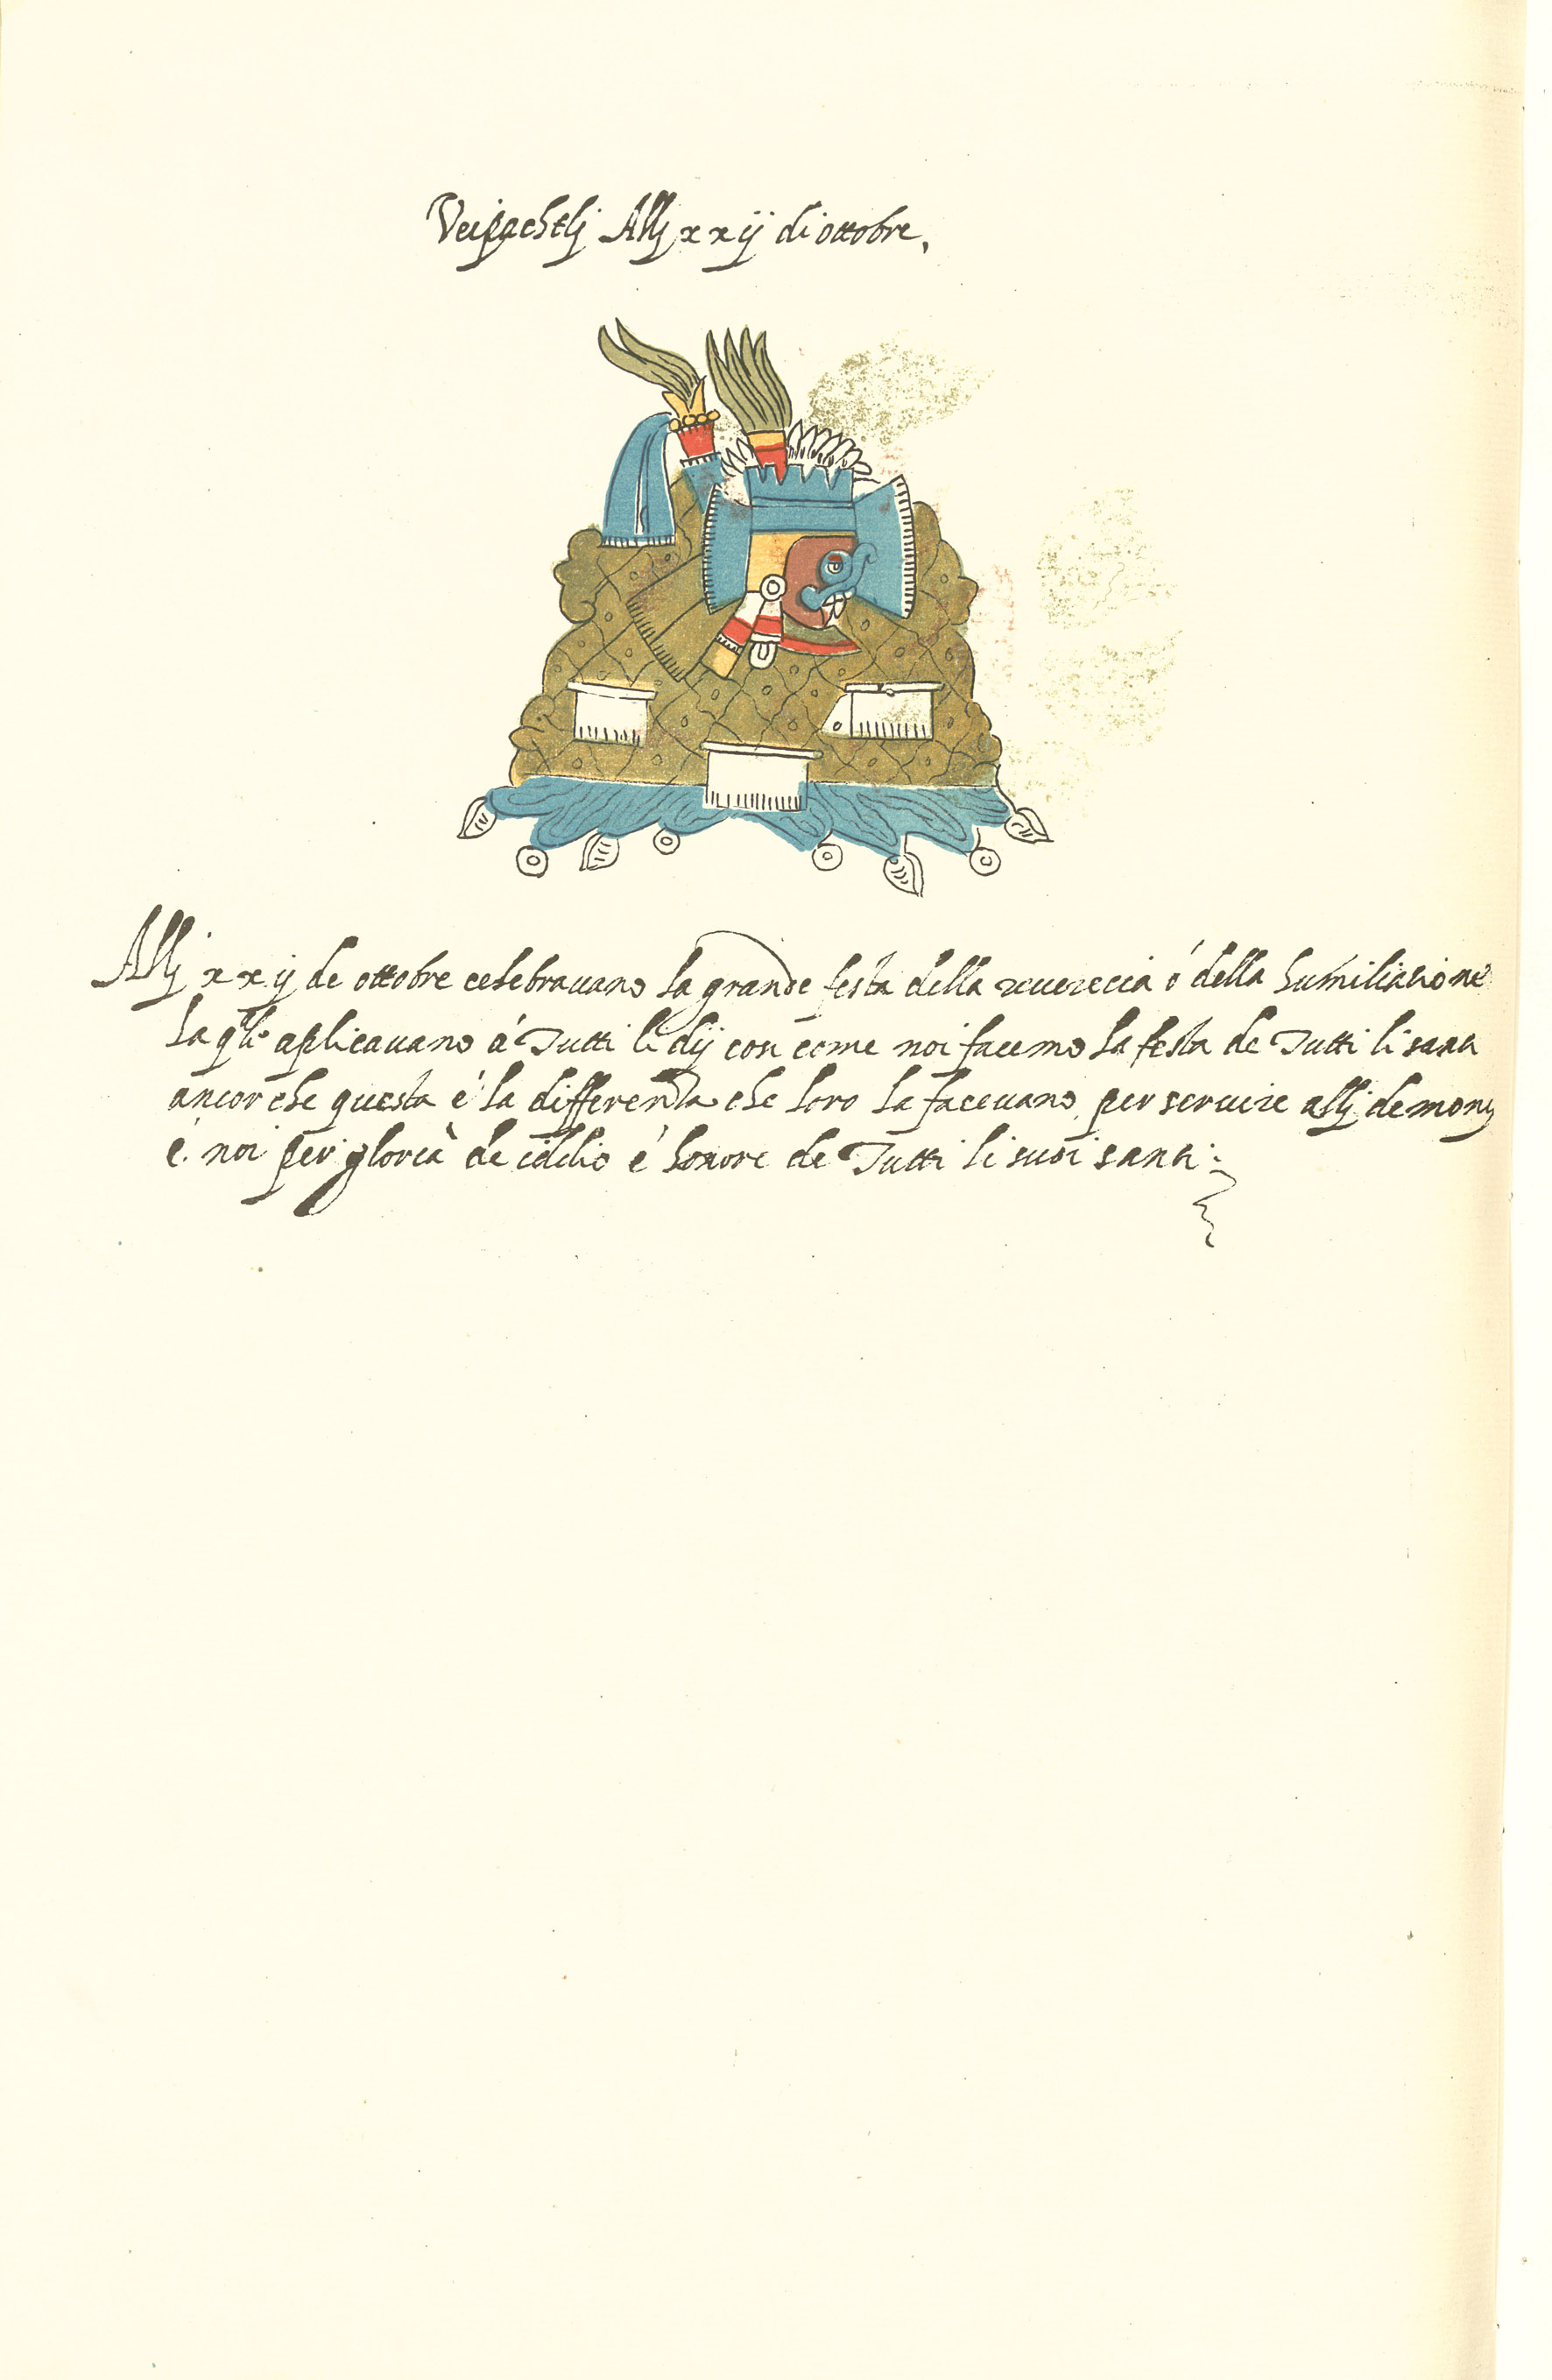 Veipachtlj Allj xxij di ottobre,
Allj xxij de ottobre celebrauano la grande festa della reuerecia ó della humiliatione
la qle aplicauano á Tutti li dij cosi come noi facemo la festa de Tutti li santi
ancor che questa é la differentia che loro la faceuano per seruire allj demonij
é noi per gloria de iddio é honore de Tutti li suoi santi: